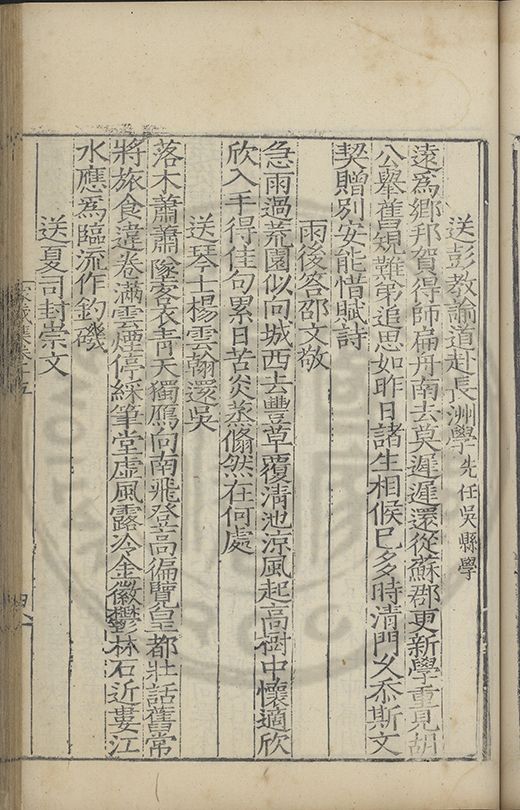 送彭教諭道赴長洲學 先任吳縣學
遠為鄉邦賀得師扁舟南去莫遲遲還從蘇郡更新學重見胡
公舉舊規難弟追思如昨日諸生相候已多時清門久忝斯文
契贈別安能惜賦詩
雨後答邵文敬
急雨過荒園似向城西去豐草覆清池涼風起高樹中懷適欣
欣入手得佳句累日苦炎蒸翛然在何處
送琴士楊雲翰還吳
落木蕭蕭墜客衣青天獨鴈向南飛登高偏覽皇都壯話舊常
將旅食違卷滿雲煙停綵筆堂虛風露冷金徽鬱林石近婁江
水應為臨流作釣磯
送夏司封崇文